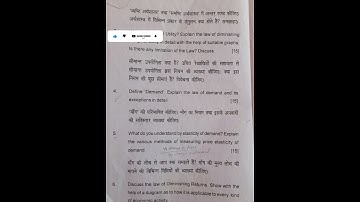 'व्यष्टि अर्थशास्त्र' तथा 'समष्टि अर्थशास्त्र' में अन्तर स्पष्ट कीजिए।
अर्थशास्त्र में विभिन्न प्रकार के संतुलन क्या होते हैं? समझाइए।
Utility? Explain the law of diminishing
detail with the help of suitable graphs.
Is there any limitation of the Law? Discuss. [15]
सीमान्त उपयोगिता क्या है? उचित रेखाचित्रों की सहायता से
सीमान्त उपयोगिता ह्रास नियम की व्याख्या कीजिए। क्या इस
नियम की कोई सीमा है? विवेचना कीजिए।
4. Define 'Demand'. Explain the law of demand and its
exceptions in detail. [15]
'माँग' को परिभाषित कीजिए। माँग का नियम तथा इसके अपवादों
की सविस्तार व्याख्या कीजिए।
5. What do you understand by elasticity of demand? Explain
the various methods of measuring price elasticity of
demand. [15]
माँग की लोच से आप क्या समझते हैं? माँग की मूल्य लोच को
मापने की विभिन्न विधियों की व्याख्या कीजिए।
6. Discuss the law of Diminishing Returns. Show with the
help of a diagram as to how it is applicable to every kind
of economic activity.